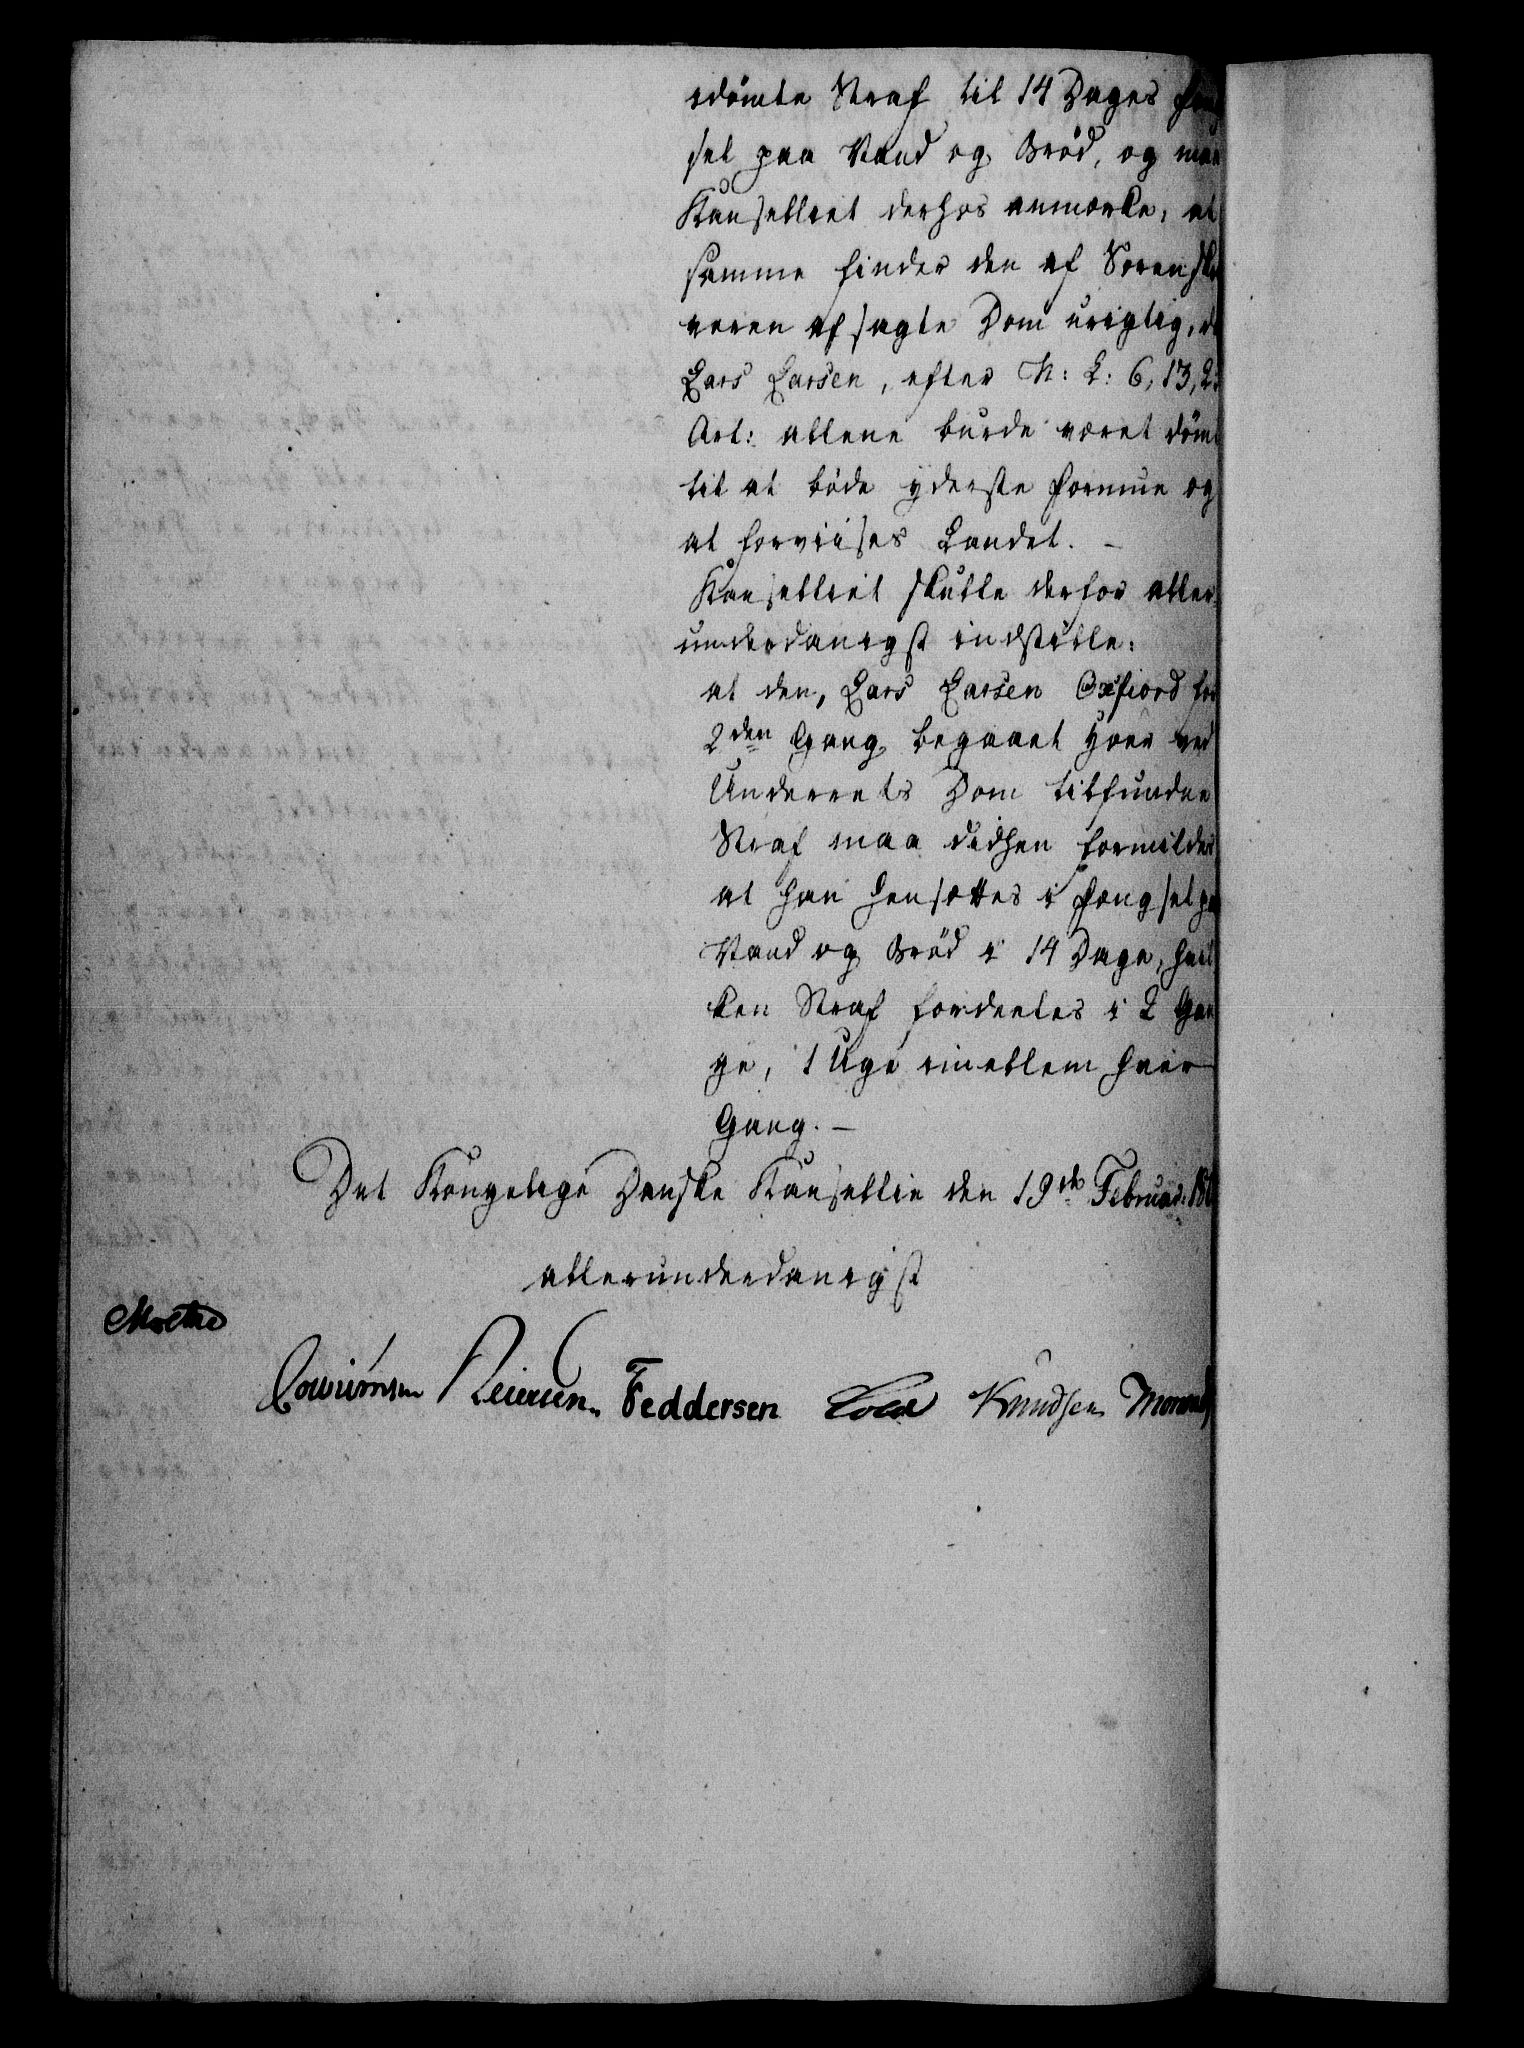 idømte Straf til 14 Dages Fæng
sel paa Vand og Brød, og maa
Kanselliet derhos anmærke, at
samme finder den af Sorenskri
veren afsagte Dom urigtig, da
Lars Larsen, efter N: L: 6, 13, 25
Art: allene burde været dømt
til at bøde yderste Formue og
at forviises Landet. –
Kanselliet skulle derfor aller
underdanigst indstille:
at den, Lars Larsen Oxfiord for
2den Gang begaaet Hoer ved
Underrets Dom tilfundne
Straf maa didhen formildes
at han hensættes i Fængsel paa
Vand og Brød i 14 Dage, hvil
ken Straf fordeeles i 2 Gan
ge, 1 Uge imellem hver
Gang. –
Det Kongelige Danske Kansellie den 19de Februar: 18
allerunderdanigst
Moltke
Cowiømsen Reiersen. Feddersen Cold Knudsen Monrad